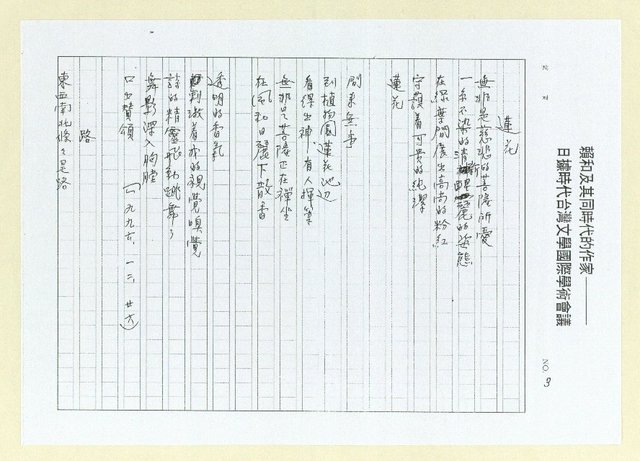 賴和及其同時代的作家———
日據時代台灣文學國際學術會議
NO. 3
蓮花
無非是慈悲的菩薩所愛
一糸不染的清新的姿態
在綠葉間展出高尚的粉紅
守護着可貴的純潔
蓮花
閒來無事
到植物園蓮花池邊
看得出神，有人揮筆
無非是菩薩正在禪坐
在風和日麗下散香
透明的香氣
刺激着你的視覺嗅覺
詩的精靈飛動跳舞了
舞影深入胸膛
口出贊頌　（一九九六、一二、廿六）
路
東西南北條々是路